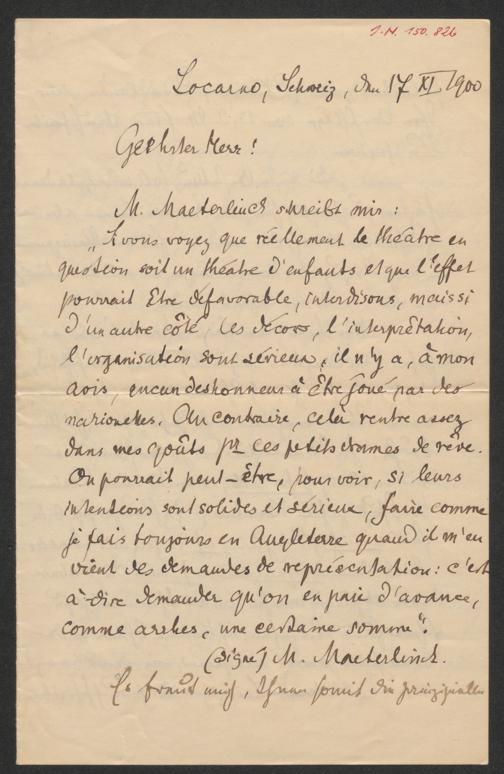 I.N. 150.826
Locarno, Schweiz, den 17 XI 1900
Geehrter Herr!
M. Maeterlinck schreibt mir:
„Si vous voyez que réellement le théâtre en
question soit un théatre d'enfants et que l'effet
pourrait être défavorable, interdisons, mais si
d'un autre côté, les décors, l'interprétation,
l'organisation sont sérieux, il n'y a, à mon
avis, aucun deshonneur à être joué par des
marionettes. Au contraire, celà rentre assez
dans mes goûts pr ces petits drames de rêve.
On pourrait peut-être, pour voir, si leurs
intentions sont solides et sérieux, faire comme
je fais toujours en Angleterre quand il m'en
vient des demandes de représentation: c'est
à-dire demander qu'on en paie d'avance,
comme arrhes, une certaine somme".
(signé) M. Maeterlinck.
Es freut mich, Ihnen somit die prinzipielle